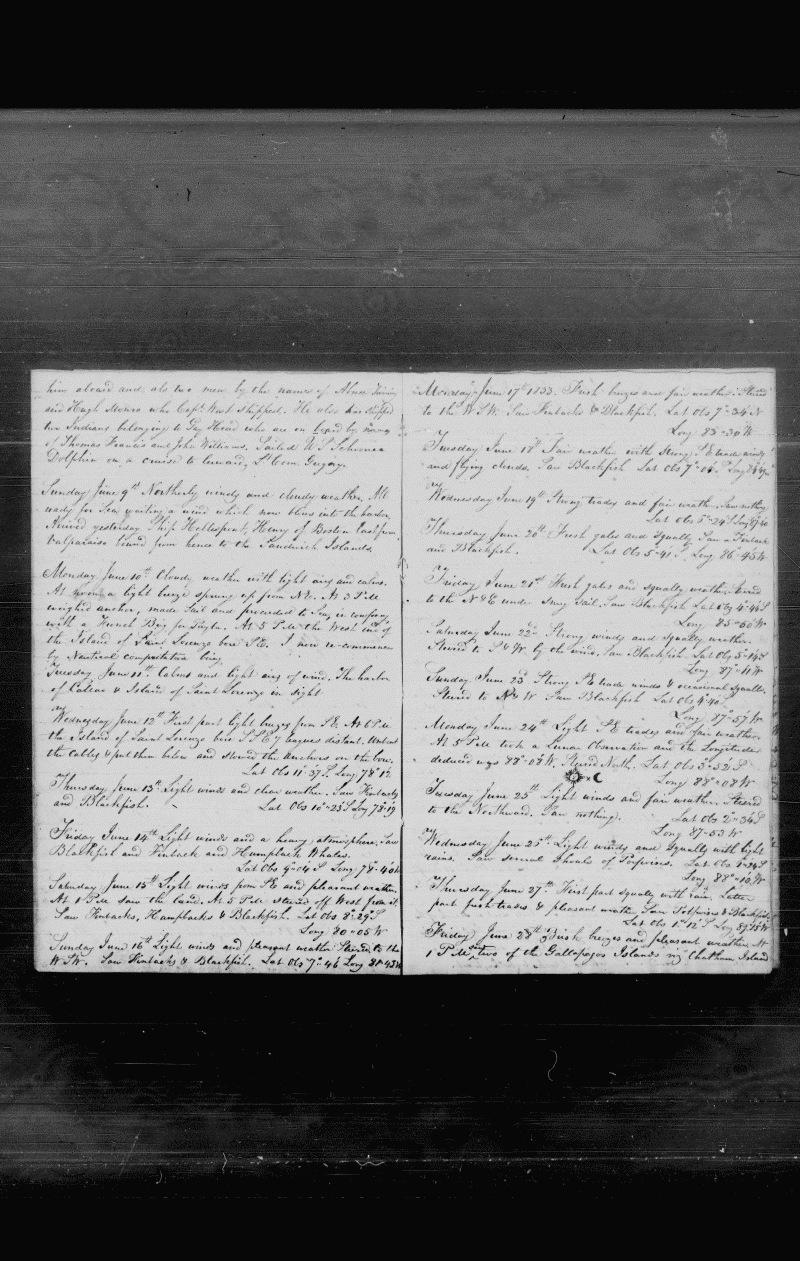 him aboard and als two men by the name of Abner
and Hugh Monro who Capt West shipped. He also has shipped
two Indians belonging to Gay Head who are on board by name
of Thomas Francis and John Williams. Sailed U S Schooner
Dolphin on a cruise to leeward, Lt Com. Gregory.
Sunday June 9th Northerly winds and cloudy weather. All
ready for Sea waiting a wind which now blows into the harbor,
Arrived yesterday Ship Hellespont, Henry of Boston last from
Valparaiso bound from hence to the Sandwich Islands.
Monday June 10th Cloudy weather with light airs and calms.
At noon a light breeze sprung up from N.E. At 3 P.M
weighed anchor, made Sail and proceeded to Sea in company
with a French Brig for At 5 P.M the West end of
the Island of Saint Lorenzo bore S.E. I now re-commence
by Nautical computation being
Tuesday June 11th. Calms and light airs of wind. The harbor
of Callao & Island of Saint Lorenzo in sight
Wednesday June 12th First part light breezes from SE. At 6 P.M
the Island of Saint Lorenzo bore S S E 7 leagues distant. Unbent
the cables & put them below and stowed the anchors on the bow.
Lat Obs 11°37 S Long 78°12
Thursday June 13th Light winds and clear weather. Saw
and Blackfish. Lat Obs 10°23 S Long 78°19
Friday June 14th Light winds and a heavy atmosphere. Saw
Blackfish and Finback and Humpback Whales.
Lat Obs 9°04 S Long 78°40 W
Saturday June 15th Light winds from SE and pleasant weather.
At 1 P.M saw the land. At 5 P.M steered off West from it
Saw Finbacks, Humpbacks & Blackfish. Lat Obs 8°29 S
Long 80°05 W
Sunday June 16th Light winds and pleasant weather Steered to the
W S W. Saw Finbacks & Blackfish. Lat Obs 7°46 Long 81°43 W
Monday June 17th 1833. Fresh breezes and fair weather Steered
to the W S W. Saw Finbacks & Blackfish. Lat Obs 7°34
Long 83°30 W
Tuesday June 18th Fair weather with Strong S E trade winds
and flying clouds. Saw Blackfish Lat Obs 7°04 Long
Wednesday June 19th Strong trades and fair weath. Saw nothing
Lat Obs 5°24 Long
Thursday June 20th Fresh gales and Squally Saw a Finback
and Blackfish. Lat Obs 5°41 S Long 86°45 W
Friday June 21st Fresh gales and squally weather tacked
to the N & E under snug sail. Saw Blackfish Lat Obs 4°46 S
Long 85°50 W
Saturday June 22d Strong winds and Squally weather.
Steered to S & W by the wind. Saw Blackfish. Lat Obs 5°14 S
Long 87°11 W
Sunday June 23d Strong SE trade winds & occasional squalls.
Steered to N & W Saw Blackfish Lat Obs 4°40
Long 87°57 W
Monday June 24th Light S E trades and fair weather.
At 5 P.M took a Lunar Observation and the Longitude
deduced was 88°02 W. Steered North. Lat Obs 3°32 S
Long 88°08 W
Tuesday June 25th Light winds and fair weather. Steered
to the Northward. Saw nothing. Lat Obs 2°34 S
Long 87°53 W
Wednesday June 26th Light winds and Squally with light
rains. Saw several shoals of Porpoises. Lat Obs 1°24 S
Long 88°10 W
Thursday June 27th First part squally with rain. Latter
part fresh trades & pleasant weath. Saw Porpoises & Blackfish
Lat Obs 1°12 S Long 89°15 W
Friday June 28th Fresh breezes and pleasant weather At
1 P.M saw two of the Gallapagos Islands viz Chatham Island